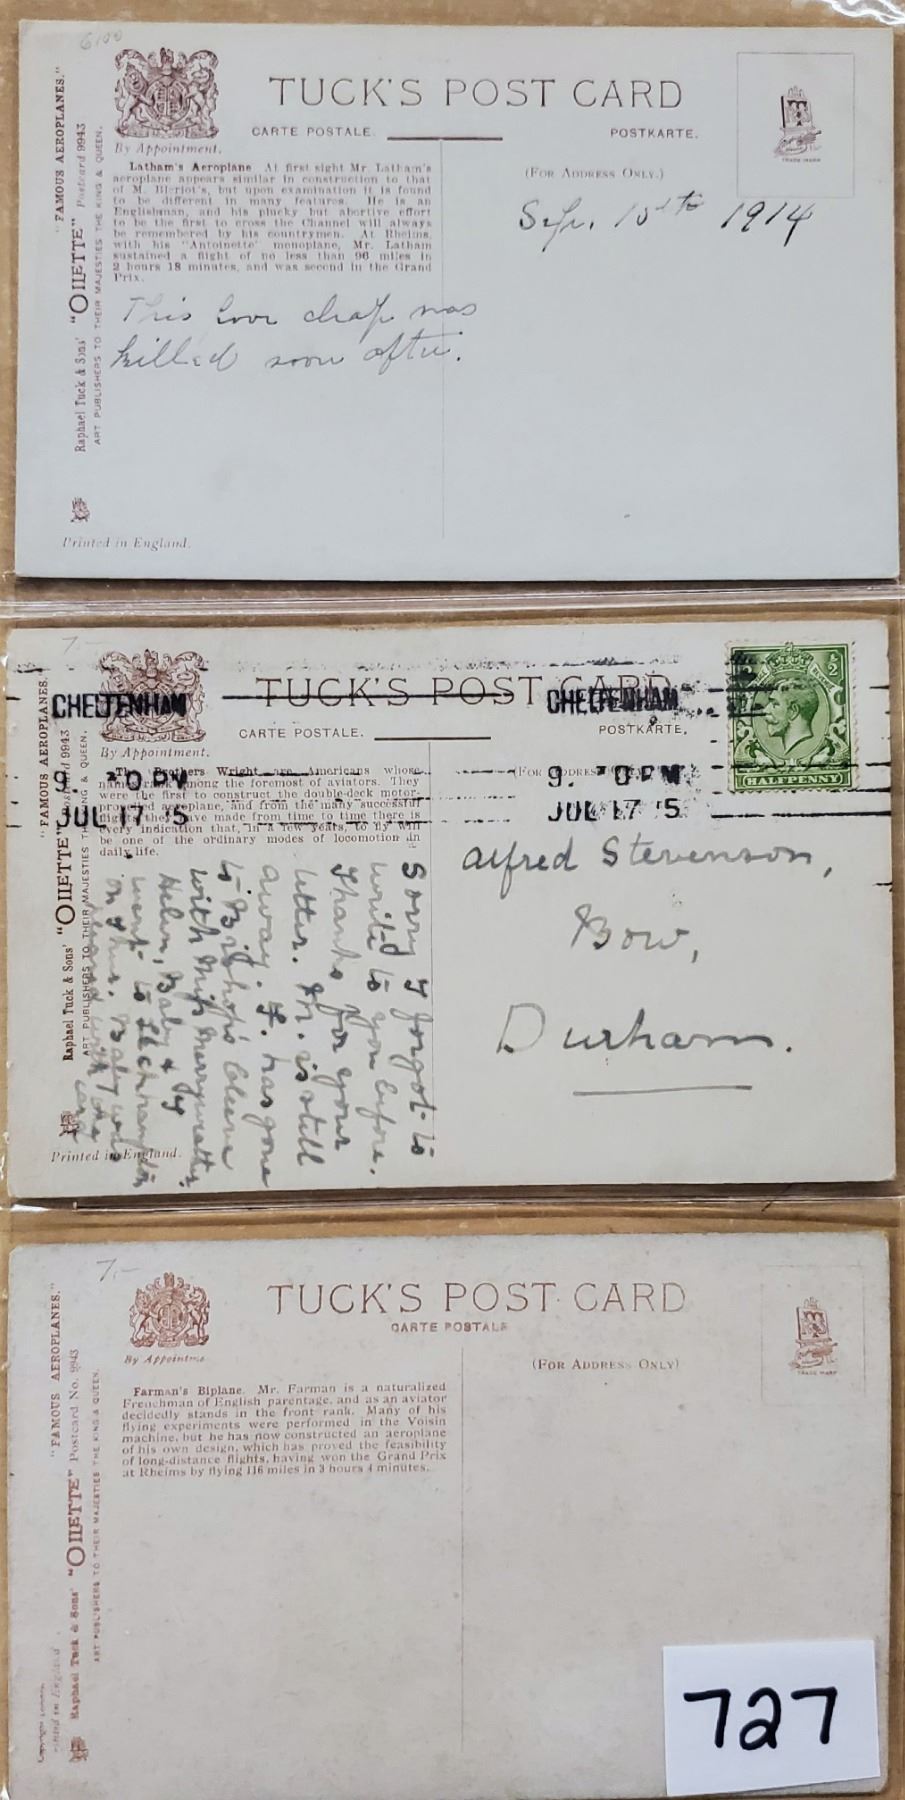 6100
"FAMOUS AEROPLANES."
Raphael Tuck & Sons' "OILETTE" Postcard 9943
ART PUBLISHERS TO THEIR MAJESTIES THE KING & QUEEN.
Printed in England.
By Appointment.
TUCK'S POST CARD
CARTE POSTALE.
POSTKARTE.
(FOR ADDRESS ONLY.)
TRADE MARK
Latham's Aeroplane. At first sight Mr. Latham's
aeroplane appears similar in construction to that
of M. Bleriot's, but upon examination it is found
to be different in many features. He is an
Englishman, and his plucky but abortive effort
to be the first to cross the Channel will always
be remembered by his countrymen. At Rheims,
with his "Antoinette" monoplane, Mr. Latham
sustained a flight of no less than 96 miles in
2 hours 18 minutes, and was second in the Grand
Prix.
This chap was
killed soon after.
Sep. 1914
7.-
"FAMOUS AEROPLANES."
Raphael Tuck & Sons' "OILETTE" Postcard 9943
ART PUBLISHERS TO THEIR MAJESTIES THE KING & QUEEN.
Printed in England.
By Appointment.
TUCK'S POST CARD
CARTE POSTALE.
POSTKARTE.
(FOR ADDRESS ONLY.)
CHELTENHAM
9. 30 PM
JUL 17 15
CHELTENHAM
9. 30 PM
JUL 17 15
HALFPENNY
The Brothers Wright are Americans whose
names rank among the foremost of aviators. They
were the first to construct the double-deck motor-
propelled aeroplane, and from the many successful
flights they have made from time to time there is
every indication that, in a few years, to fly will
be one of the ordinary modes of locomotion in
daily life.
Sorry I forgot to
write to you before.
Thanks for your
letter. M. is still
away. F. has gone
to Bishop's Cleeve
with Miss Merryweather.
Helen, Baby &
went to Leckhampton
on Thur. Baby was
Alfred Stevenson,
Bow,
Durham.
7.-
"FAMOUS AEROPLANES."
Raphael Tuck & Sons' "OILETTE" Postcard No. 9943
ART PUBLISHERS TO THEIR MAJESTIES THE KING & QUEEN.
Printed in England
By Appointme
TUCK'S POST CARD
CARTE POSTALE
(FOR ADDRESS ONLY)
TRADE MARK
Farman's Biplane. Mr. Farman is a naturalized
Frenchman of English parentage, and as an aviator
decidedly stands in the front rank. Many of his
flying experiments were performed in the Voisin
machine, but he has now constructed an aeroplane
of his own design, which has proved the feasibility
of long-distance flights, having won the Grand Prix
at Rheims by flying 116 miles in 3 hours 4 minutes.
727